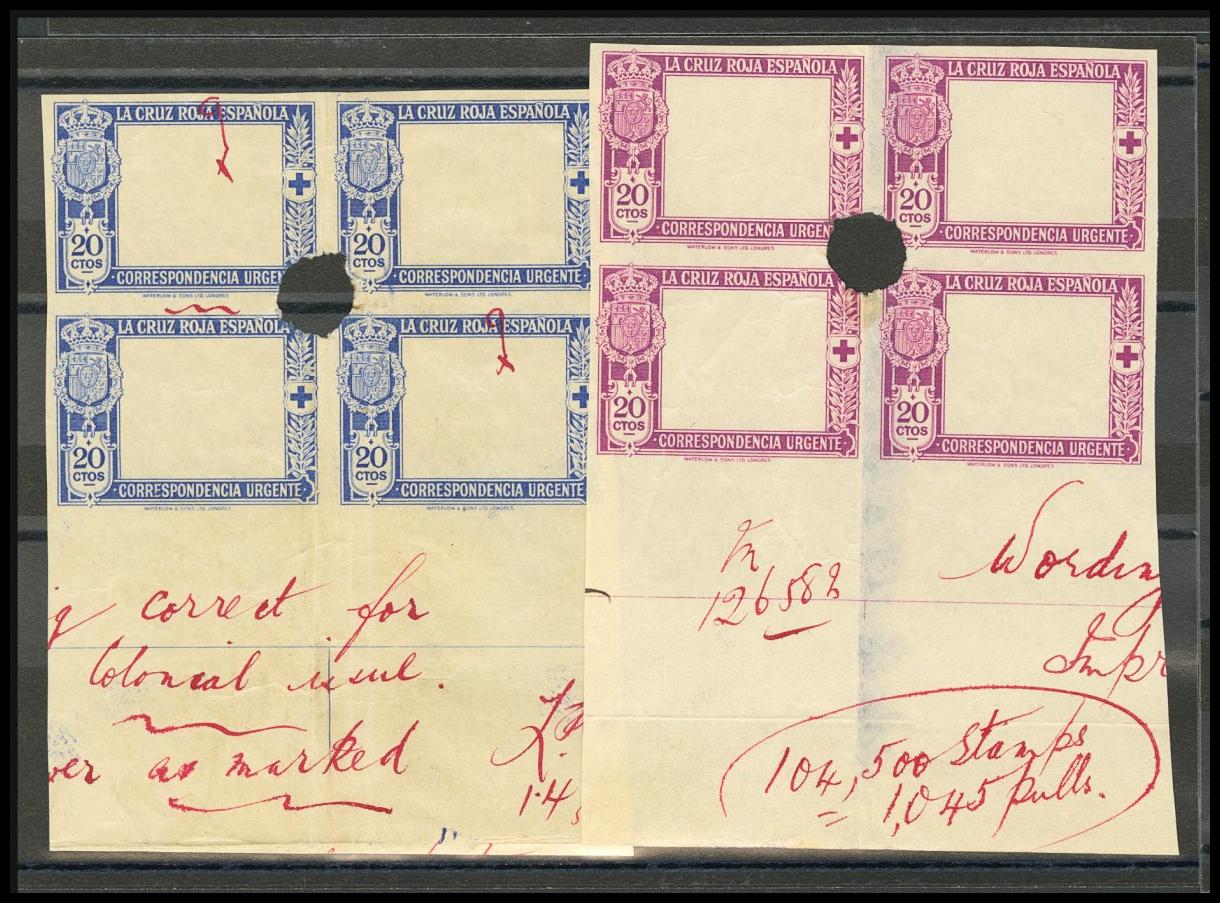 LA CRUZ ROJA ESPAÑOLA
20
CTOS
CORRESPONDENCIA URGENTE
WATERLOW & SONS LTD. LONDRES.
LA CRUZ ROJA ESPAÑOLA
20
CTOS
CORRESPONDENCIA URGENTE
WATERLOW & SONS LTD. LONDRES.
LA CRUZ ROJA ESPAÑOLA
20
CTOS
CORRESPONDENCIA URGENTE
WATERLOW & SONS LTD. LONDRES.
LA CRUZ ROJA ESPAÑOLA
20
CTOS
CORRESPONDENCIA URGENTE
WATERLOW & SONS LTD. LONDRES.
g correct for
Colonial issue.
ver as marked
1.4
LA CRUZ ROJA ESPAÑOLA
20
CTOS
CORRESPONDENCIA URGEN
WATERLOW & SONS LTD. LONDRES.
LA CRUZ ROJA ESPAÑOLA
20
CTOS
CORRESPONDENCIA URGENTE
WATERLOW & SONS LTD. LONDRES.
LA CRUZ ROJA ESPAÑOLA
20
CTOS
CORRESPONDENCIA URGENTE
WATERLOW & SONS LTD. LONDRES.
LA CRUZ ROJA ESPAÑOLA
20
CTOS
CORRESPONDENCIA URGENTE
WATERLOW & SONS LTD. LONDRES.
Wording
Impr
104,500 Stamps
= 1,045 pulls.